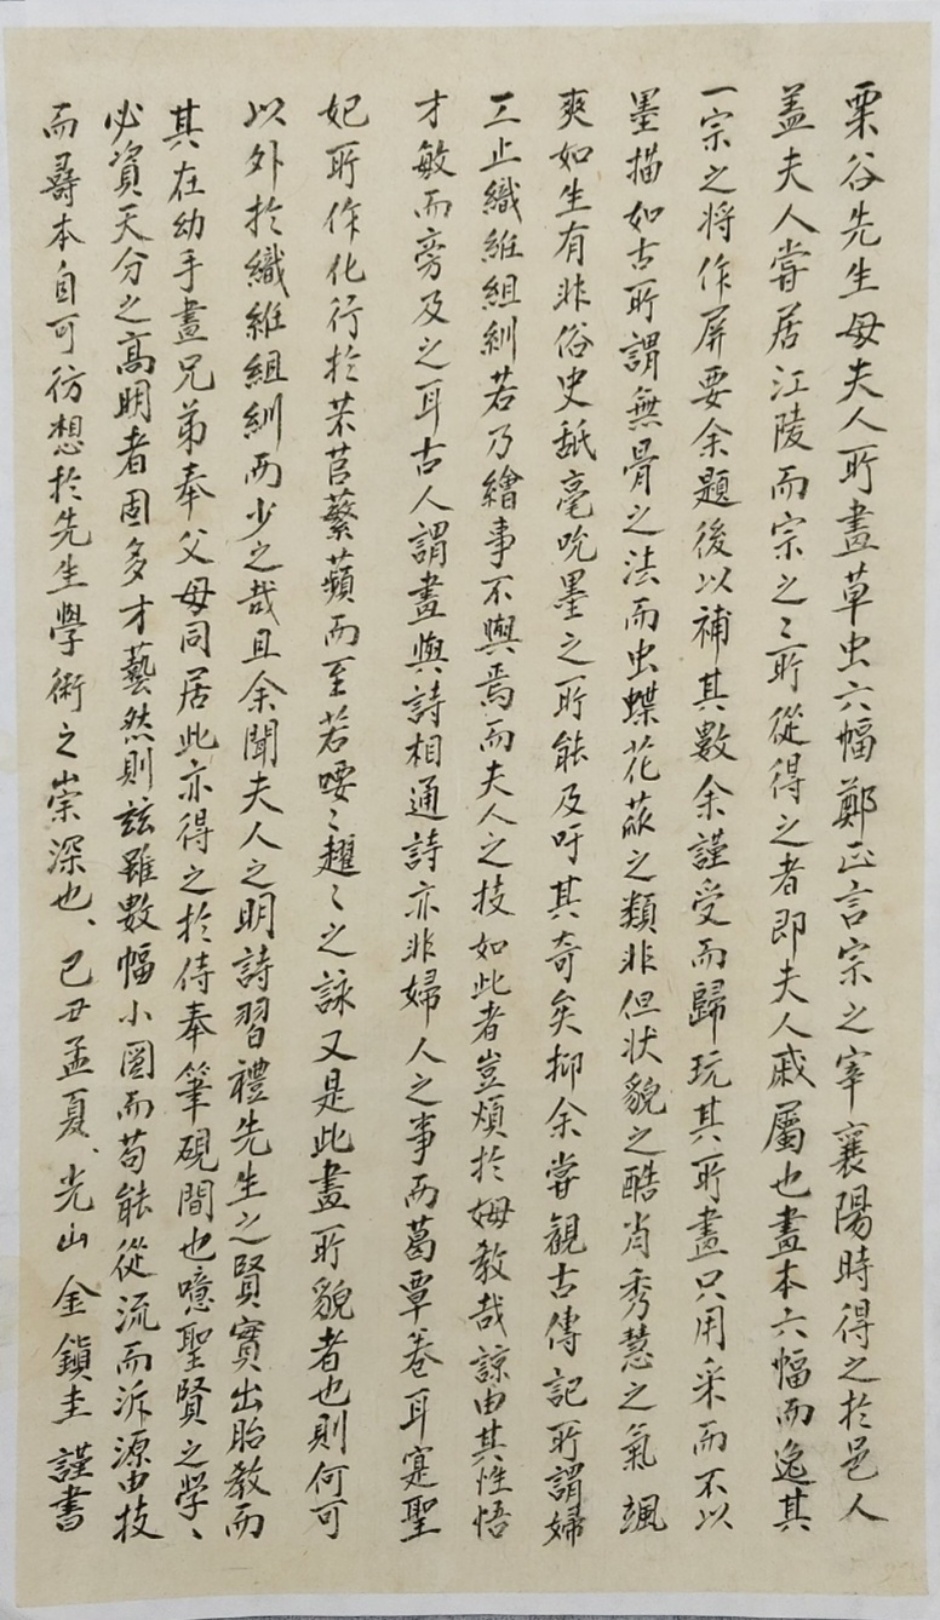 栗谷先生母夫人所畫草虫六幅鄭正言宗之宰襄陽時得之於邑人
盖夫人嘗居江陵而宗之〻所從得之者即夫人戚屬也畫本六幅而逸其
一宗之将作屏要余題後以補其數余謹受而歸玩其所畫只用采而不以
墨描如古所謂無骨之法而虫蝶花蓏之類非但状貌之酷肖秀慧之氣颯
爽如生有非俗史舐毫吮墨之所能及吁其奇矣抑余嘗觀古傳記所謂婦
工止織維組紃若乃繪事不與焉而夫人之技如此者豈煩於姆教哉諒由其性悟
才敏而旁及之耳古人謂畫與詩相通詩亦非婦人之事而葛覃卷耳寔聖
妃所作化行於芣苢蘩蘋而至若喓〻趯〻之詠又是此畫所貌者也則何可
以外於織維組紃而少之哉且余聞夫人之明詩習禮先生之賢實出胎教而
其在幼手畫兄弟奉父母同居此亦得之於侍奉筆硯間也噫聖賢之學〻
必資天分之高明者固多才藝然則玆雖數幅小圖而苟能從流而泝源由技
而尋本自可彷想於先生學術之崇深也、己丑孟夏、光山金鎭圭謹書